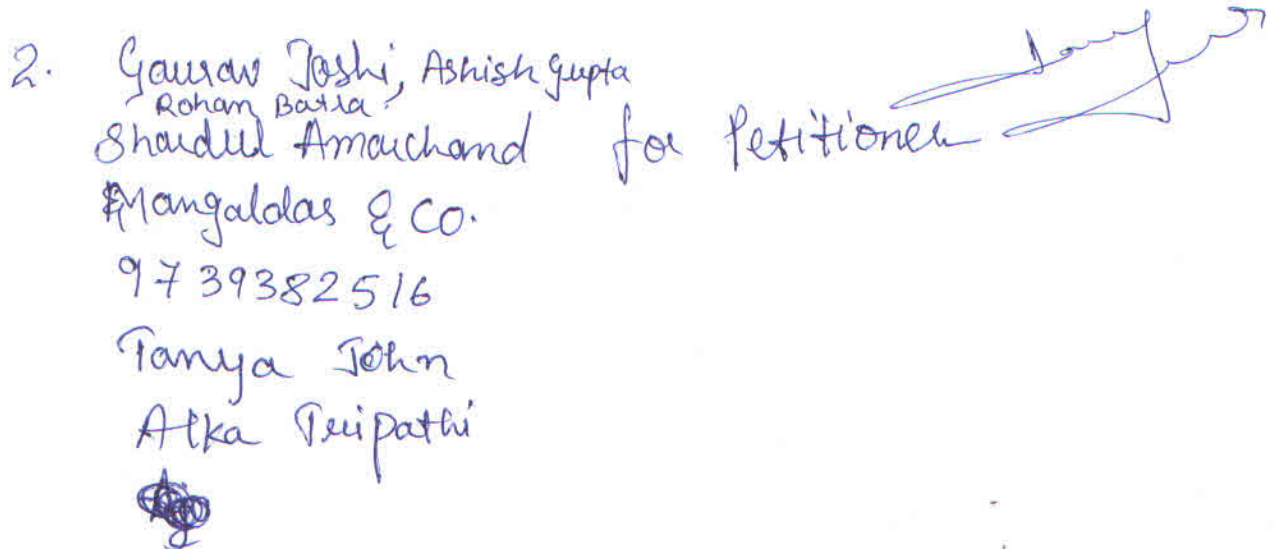 2. Gaurav Joshi, Ashish Gupta
Rohan Batra
Shardul Amarchand for Petitioner
Mangaldas & Co.
9739382516
Tanya John
Alka Tripathi